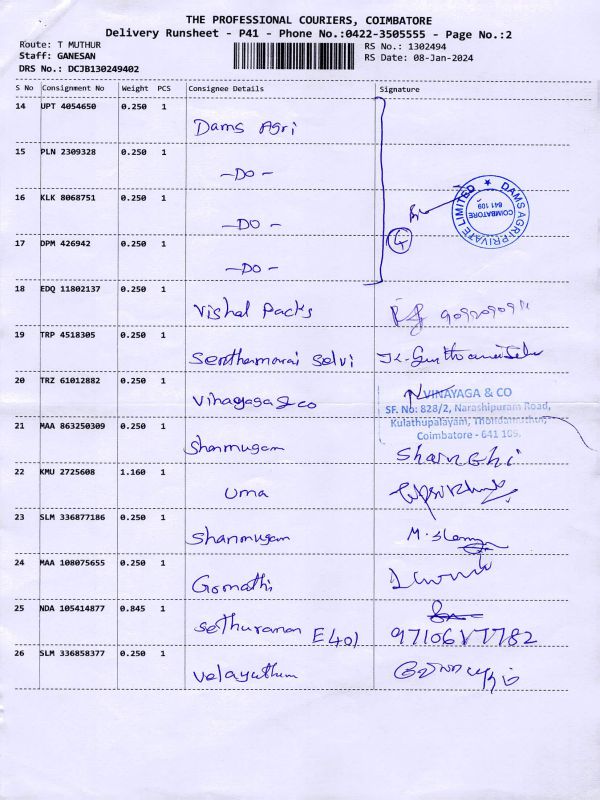 THE PROFESSIONAL COURIERS, COIMBATORE
Delivery Runsheet - P41 - Phone No.:0422-3505555 - Page No.:2
Route: T MUTHUR
RS No.: 1302494
Staff: GANESAN
RS Date: 08-Jan-2024
DRS No.: DCJB130249402
S No Consignment No Weight PCS Consignee Details Signature
14 UPT 4054650 0.250 1
Dams Agri
15 PLN 2309328 0.250 1
-DO-
16 KLK 8068751 0.250 1
-DO-
DAMS AGRI PRIVATE LIMITED ★
COIMBATORE
641 109
17 DPM 426942 0.250 1
4
-DO-
18 EDQ 11802137 0.250 1
Vishal Packs
19 TRP 4518305 0.250 1
Senthamarai Selvi
20 TRZ 61012882 0.250 1
Vinayaga & co
VINAYAGA & CO
SF. No: 828/2, Narashipuram Road,
Kulathupalayam, Thondamuthur,
Coimbatore - 641 109.
21 MAA 863250309 0.250 1
Shanmugam
Shanghi
22 KMU 2725608 1.160 1
Uma
23 SLM 336877186 0.250 1
Shanmugam
24 MAA 108075655 0.250 1
Gomathi
25 NDA 105414877 0.845 1
Sethuraman E401
26 SLM 336858377 0.250 1
Velayutham